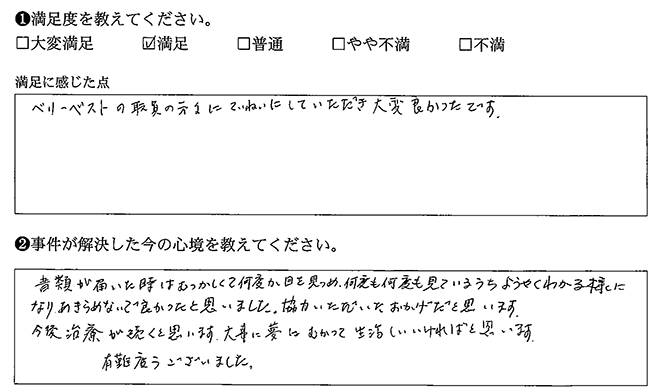 ❶満足度を教えてください。
□大変満足 ☑満足 □普通 □やや不満 □不満
満足に感じた点
ベリーベストの職員の方々にていねいにしていただき大変良かったです。
❷事件が解決した今の心境を教えてください。
書類が届いた時はむつかしくて何度か目を見つめ、何度も何度も見ているうちようやくわかる様に
なりあきらめないで良かったと思いました。協力いただいたおかげだと思います。
今後治療が続くと思います。大事に夢にむかって生活しいければと思います。
有難度うございました。